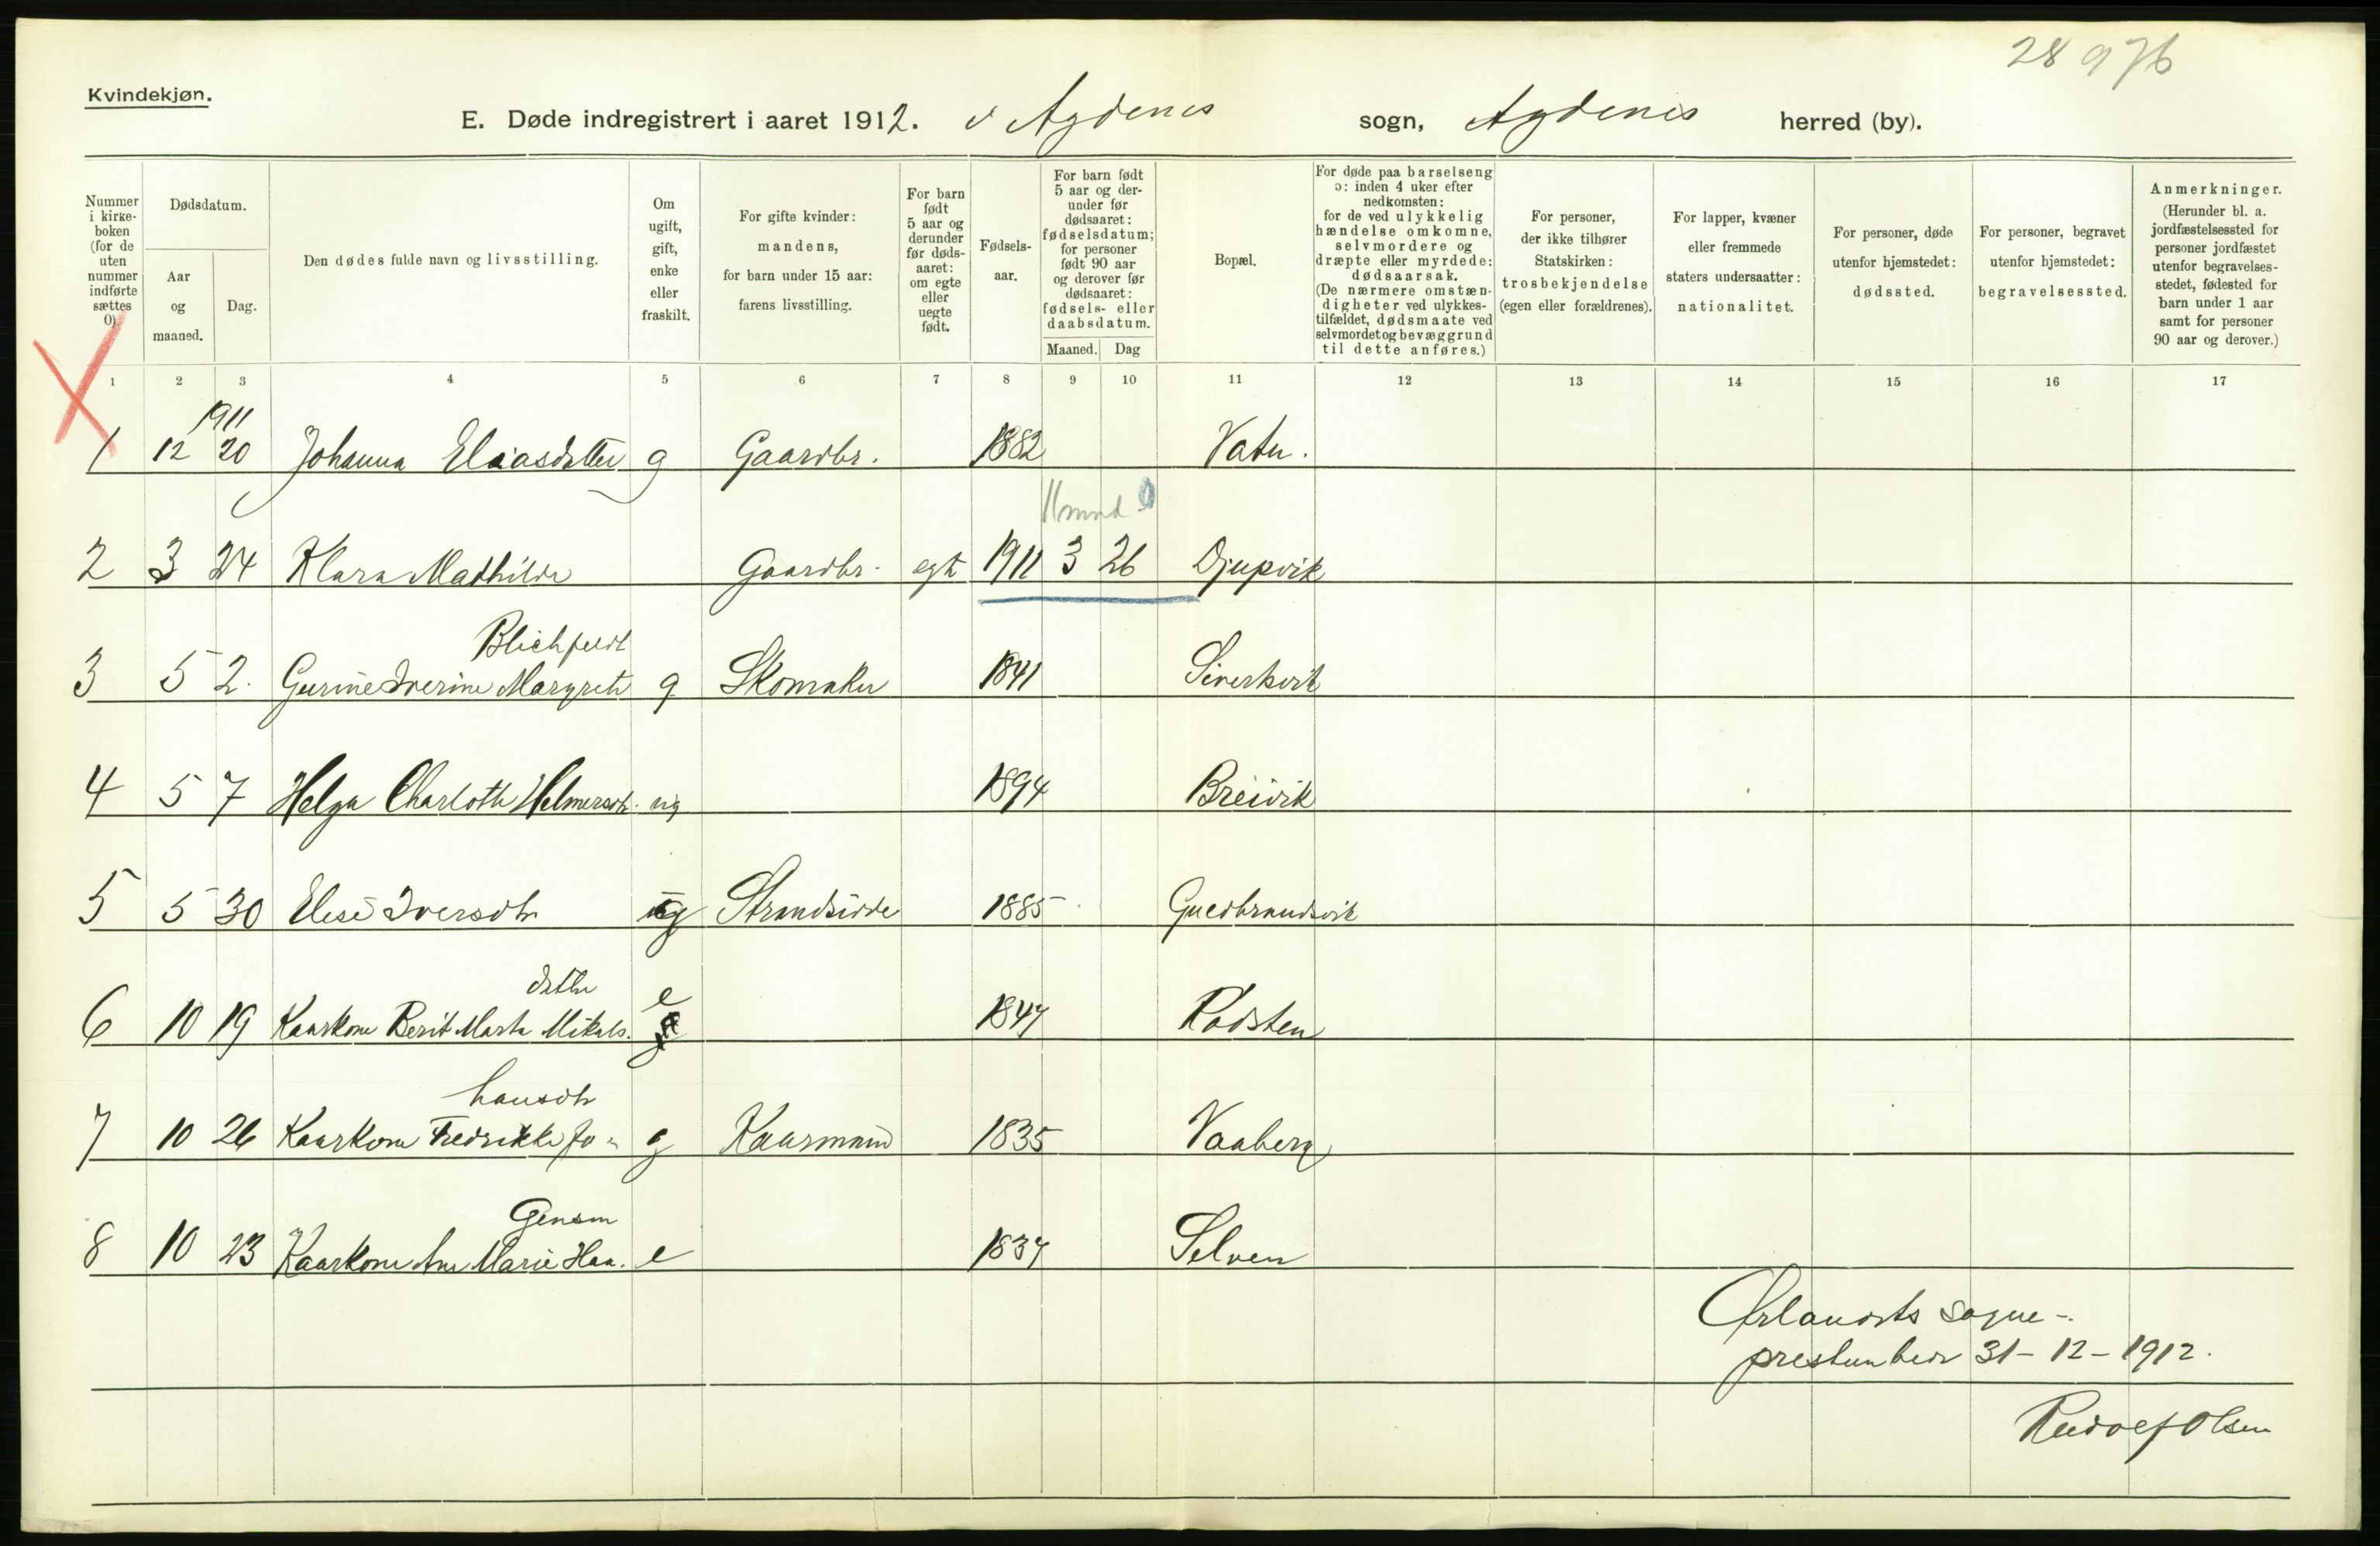 28 976
Kvindekjøn.
E. Døde indregistrert i aaret 1912. i Agdenes sogn, Agdenes herred (by).
Nummer i kirke-boken (for de uten nummer indførte sættes 0).
Dødsdatum.
Aar og maaned.
Dag.
Den dødes fulde navn og livsstilling.
Om ugift, gift, enke eller fraskilt.
For gifte kvinder: mandens, for barn under 15 aar: farens livsstilling.
For barn født 5 aar og derunder før døds-aaret: om egte eller uegte født.
Fødsels-aar.
For barn født 5 aar og der-under før dødsaaret: fødselsdatum; for personer født 90 aar og derover før dødsaaret: fødsels- eller daabsdatum.
Maaned. Dag
Bopæl.
For døde paa barselseng ɔ: inden 4 uker efter nedkomsten: for de ved ulykkelig hændelse omkomne, selvmordere og dræpte eller myrdede: dødsaarsak. (De nærmere omstæn-digheter ved ulykkes-tilfældet, dødsmaate ved selvmordet og bevæggrund til dette anføres.)
For personer, der ikke tilhører Statskirken: trosbekjendelse (egen eller forældrenes).
For lapper, kvæner eller fremmede staters undersaatter: nationalitet.
For personer, døde utenfor hjemstedet: dødssted.
For personer, begravet utenfor hjemstedet: begravelsessted.
Anmerkninger. (Herunder bl. a. jordfæstelsessted for personer jordfæstet utenfor begravelses-stedet, fødested for barn under 1 aar samt for personer 90 aar og derover.)
1 2 3 4 5 6 7 8 9 10 11 12 13 14 15 16 17
1911
1 12 20 Johanna Eliasdatter g Gaardbr. 1882 Vatn.
11 mnd 0
2 3 24 Klara Mathilde Gaardbr. egte 1911 3 26 Djupvik
Blichfeldt
3 5 2. Gurine Iverine Margrete g Skomaker 1841 Siverkvik
4 5 7 Helga Charlothe Helmersdtr. ug 1894 Breivik
5 5 30 Elise Iversdtr ug Strandsidde 1885 Guldbrandsvik
datter
6 10 19 Kaarkone Berit Marta Mikals. e 1847 Rødsten
hansdtr
7 10 26 Kaarkone Fredrikke Jo- g Kaarmand 1835 Vaaberg
Gensen
8 10 23 Kaarkone Ane Marie Haa. e 1837 Selven
Ørlandets sogne-
prestembede 31-12-1912.
Rudolf Olsen